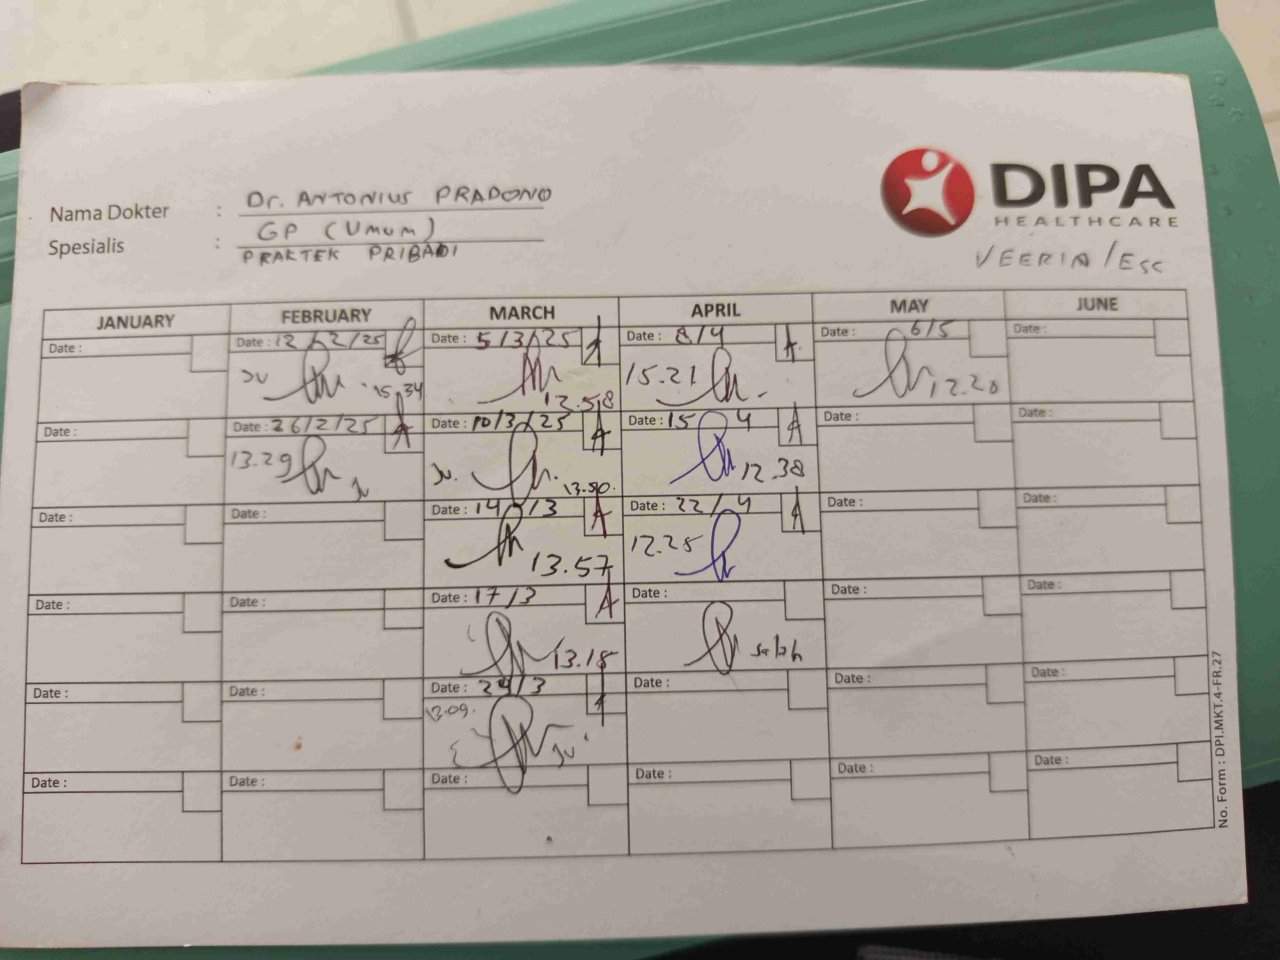 DIPA
HEALTHCARE
Nama Dokter : Dr. ANTONIUS PRADONO
Spesialis : GP (UMUM)
PRAKTEK PRIBADI
VEERIA/ESC
JANUARY FEBRUARY MARCH APRIL MAY JUNE
Date : Date : 12/2/25 Date : 5/3/25 Date : 8/4 Date : 6/5 Date :
JV 15.34 15.21 12.20
Date : Date : 26/2/25 Date : 10/3/25 Date : 15 4 Date : Date :
13.29 JV JV. 12.38
Date : Date : Date : 14/3 Date : 22/4 Date : Date :
13.57 12.28
Date : Date : Date : 17/3 Date : Date : Date :
13.18 salah
Date : Date : Date : 24/3 Date : Date : Date :
13.09. JV
Date : Date : Date : Date : Date : Date :
No. Form : DPI.MKT.4-FR.27